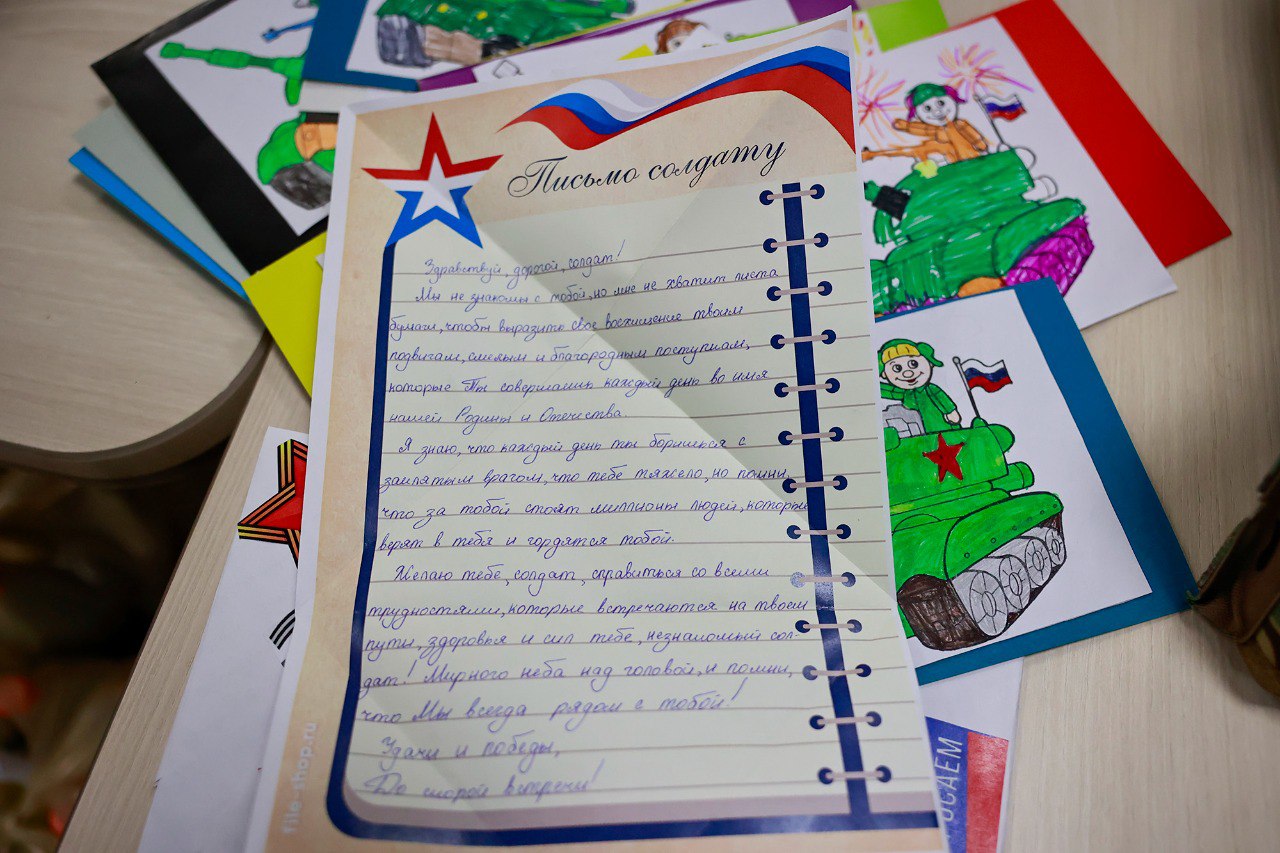 Письмо солдату
Здравствуй, дорогой, солдат!
Мы не знакомы с тобой, но мне не хватит листа
бумаги, чтобы выразить свое восхищение твоим
подвигам, смелым и благородным поступкам,
которые Ты совершаешь каждый день во имя
нашей Родины и Отечества.
Я знаю, что каждый день ты боришься с
заклятым врагом, что тебе тяжело, но помни,
что за тобой стоят миллионы людей, которые
верят в тебя и гордятся тобой.
Желаю тебе, солдат, справиться со всеми
трудностями, которые встречаются на твоем
пути, здоровья и сил тебе, незнакомый сол-
дат! Мирного неба над головой, и помни,
что Мы всегда рядом с тобой!
Удачи и победы,
До скорой встречи!
file-shop.ru